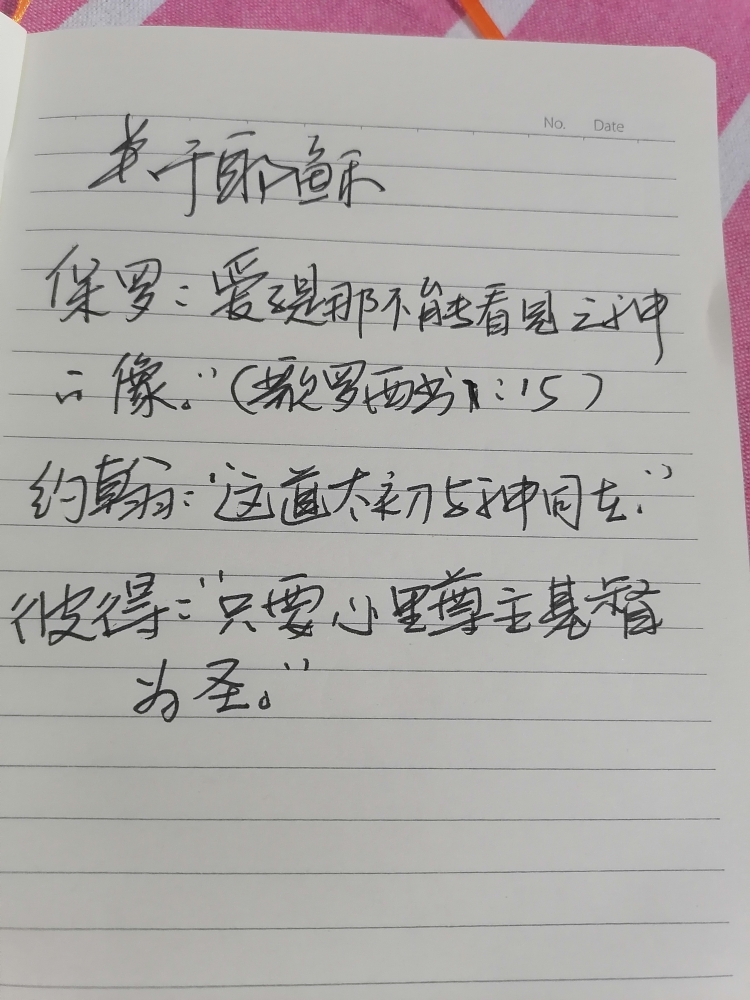 No. Date
关于耶稣
保罗：爱子是那不能看见之神
之像。”（歌罗西书1：15）
约翰：“这道太初与神同在。”
彼得：“只要心里尊主基督
为圣。”